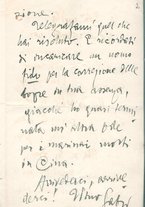 2
zione.
Telegrafami quel che
hai risoluto. E ricordati
di incaricare un uomo
fido per la correzione delle
bozze in tua assenza,
giacché ho quasi termi
nata un'altra ode
per i marinai morti
in Cina.
Arrivederci, arrive
derci. Il tuo Gabri